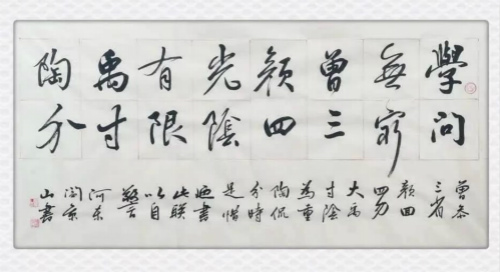 學問
無窮
曾三
顏四
光陰
有限
禹寸
陶分
曾参
三省
顏回
四勿
大禹
寸陰
為重
陶侃
分時
是惜
書
此联
以自
警
河东
山書